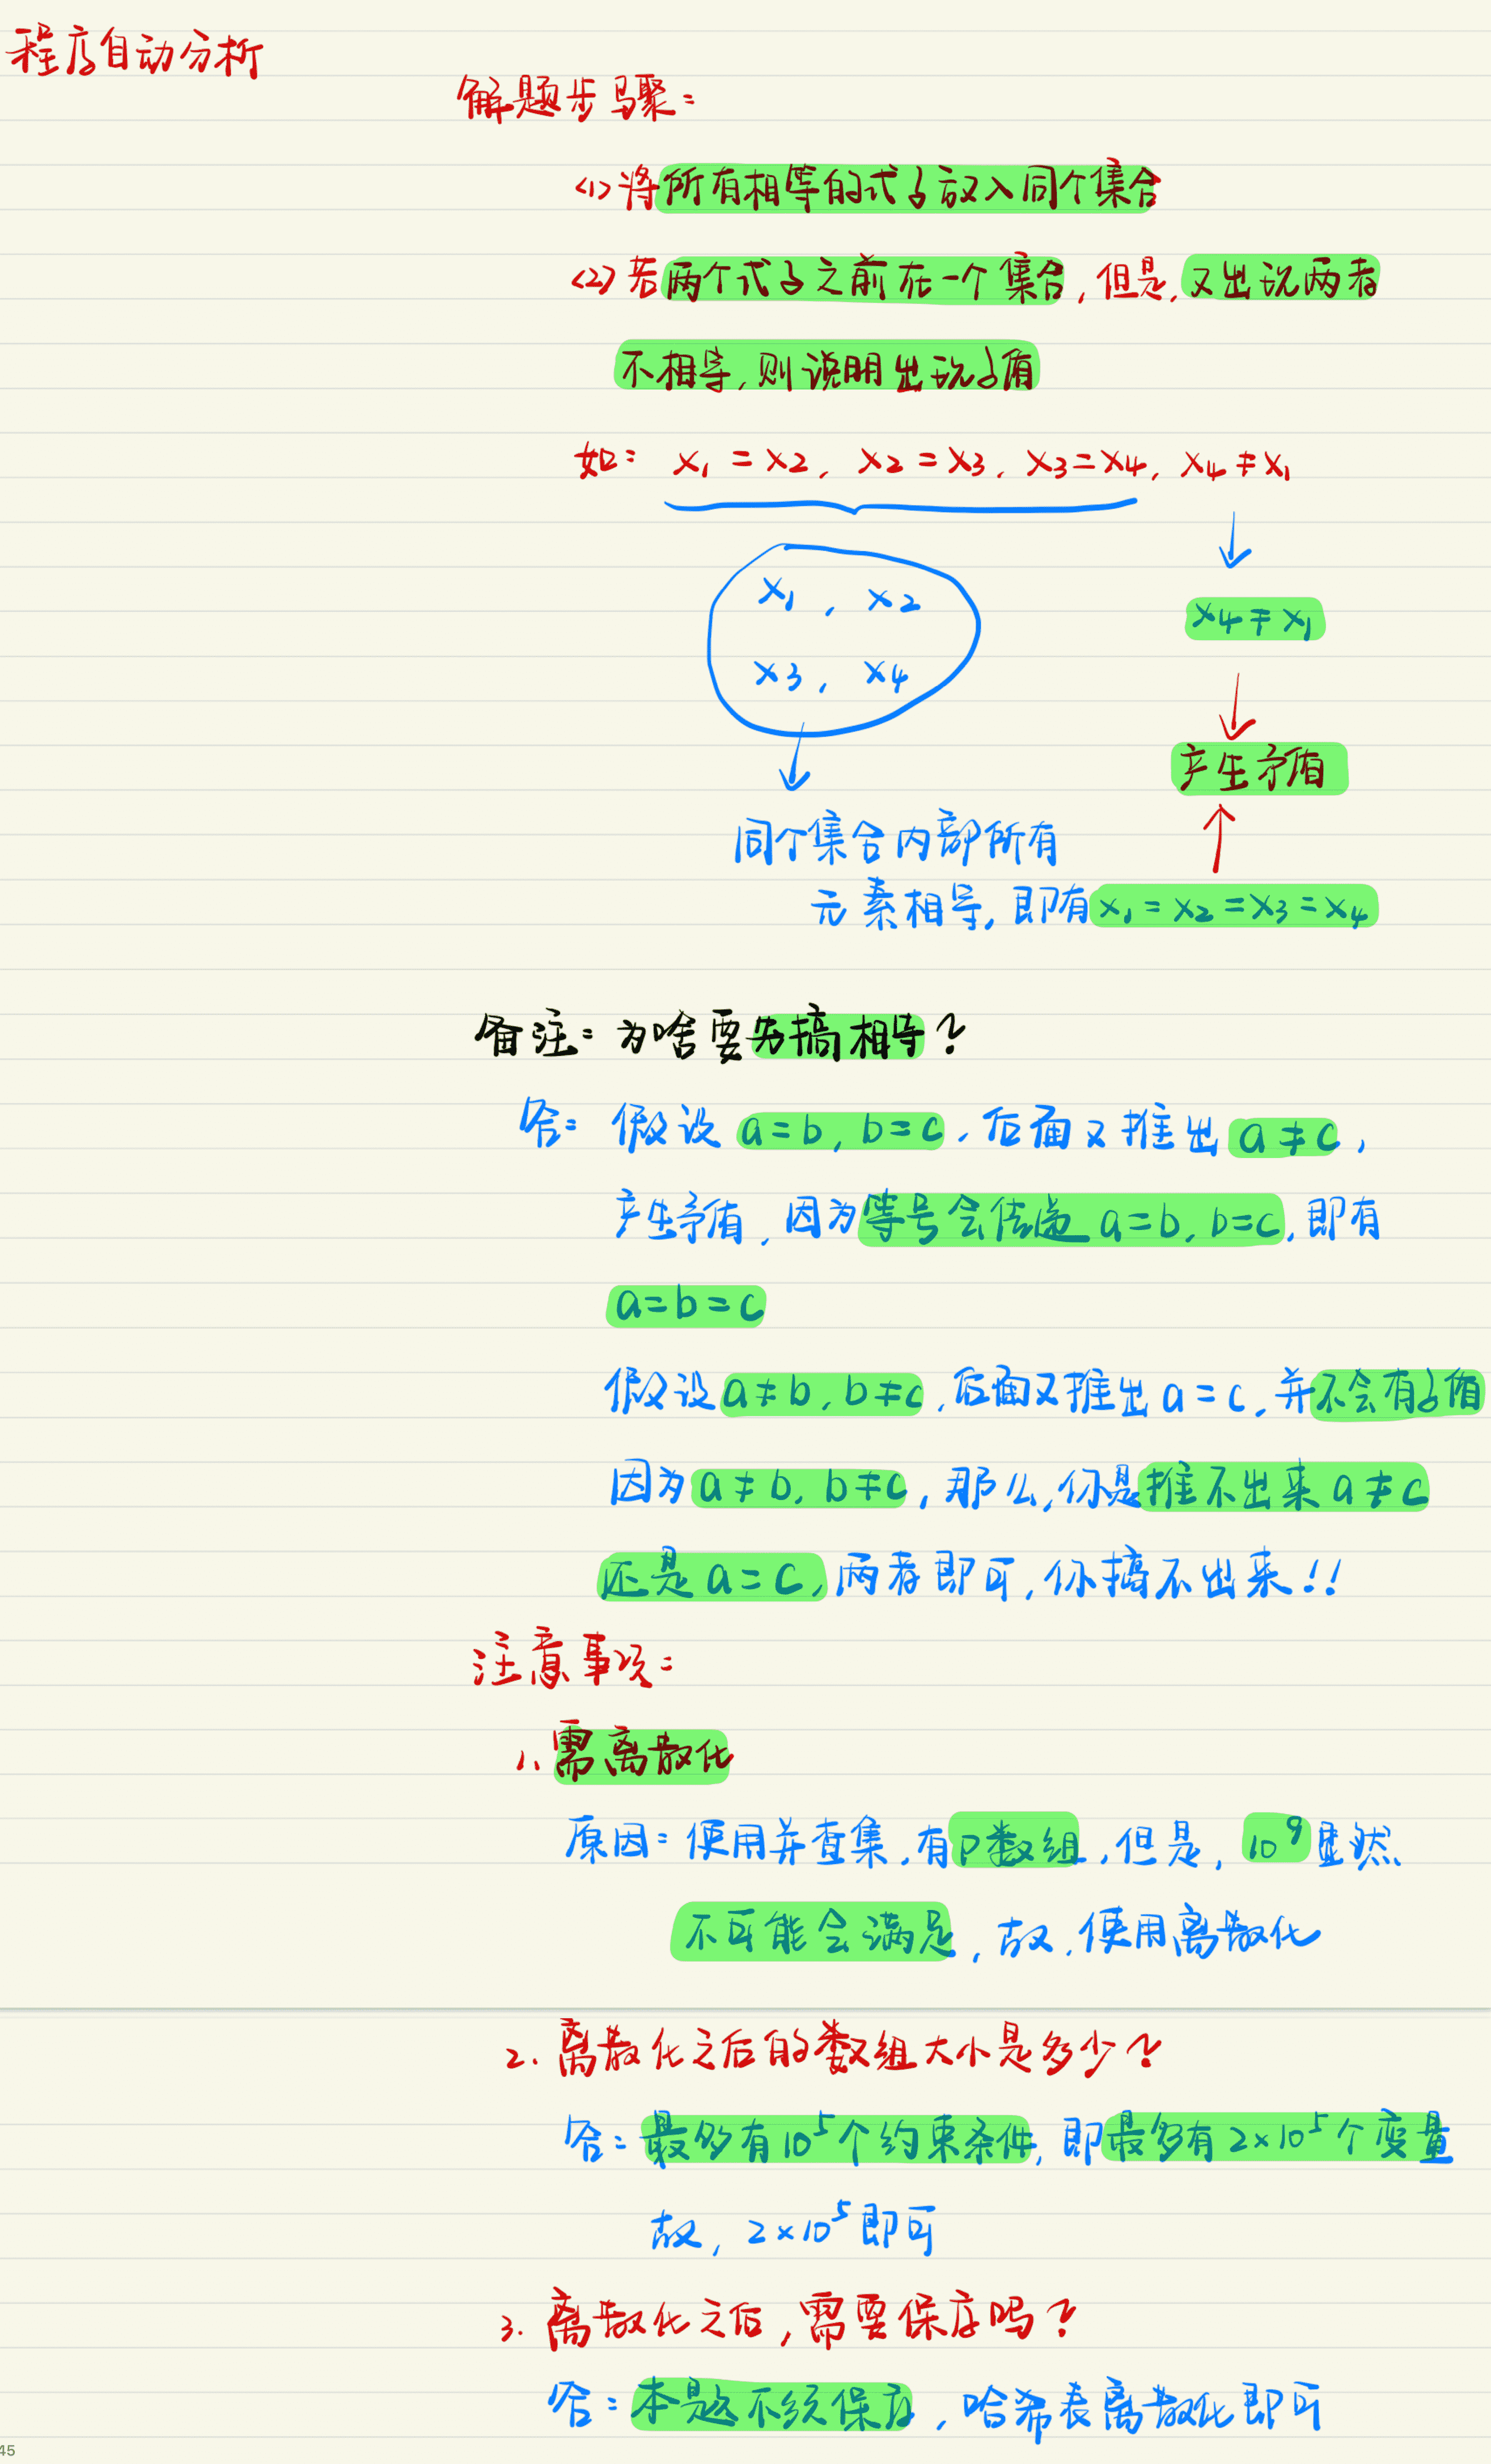 程序自动分析
解题步骤:
(1)将所有相等的式子放入同个集合
(2)若两个式子之前在一个集合,但是,又出现两者
不相等,则说明出现矛盾
如: x₁=x₂, x₂=x₃, x₃=x₄, x₄≠x₁
x₁, x₂
x₃, x₄
x₄≠x₁
产生矛盾
同个集合内部所有
元素相等,即有x₁=x₂=x₃=x₄
备注:为啥要先搞相等?
答: 假设 a=b, b=c,后面又推出 a≠c,
产生矛盾,因为等号会传递 a=b, b=c,即有
a=b=c
假设a≠b, b≠c,后面又推出a=c,并不会有矛盾
因为a≠b, b≠c,那么,你是推不出来a≠c
还是a=c,两者即可,你搞不出来!!
注意事项:
1.需离散化
原因:使用并查集,有P数组,但是,10⁹显然
不可能会满足,故,使用离散化
2.离散化之后的数组大小是多少?
答:最多有10⁵个约束条件,即最多有2×10⁵个变量
故,2×10⁵即可
3.离散化之后,需要保序吗?
答:本题不须保序,哈希表离散化即可
45